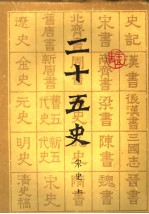 史記 漢書 後漢書 三國志 晉書
宋書 南齊書 梁書 陳書 魏書
北齊書
二十五史
宋史上
舊唐書 新唐書 舊五代史 新五代史 宋史
遼史 金史 元史 明史 清史稿